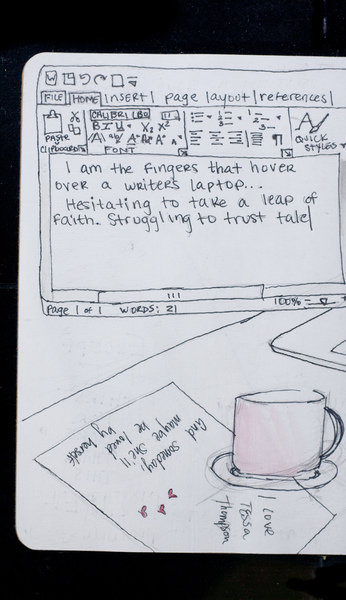 W
FILE HOME INSERT page layout references
CALIBRI LBO 11
B I U X₂ X²
PASTE
CLIPBOARD
FONT
QUICK
STYLES
I am the fingers that hover
over a writers laptop...
Hesitating to take a leap of
faith. Struggling to trust tale
Page 1 of 1 WORDS: 21
100%
And
someday
maybe she'll
be loved
by herself
I love
Tessa
Thompson